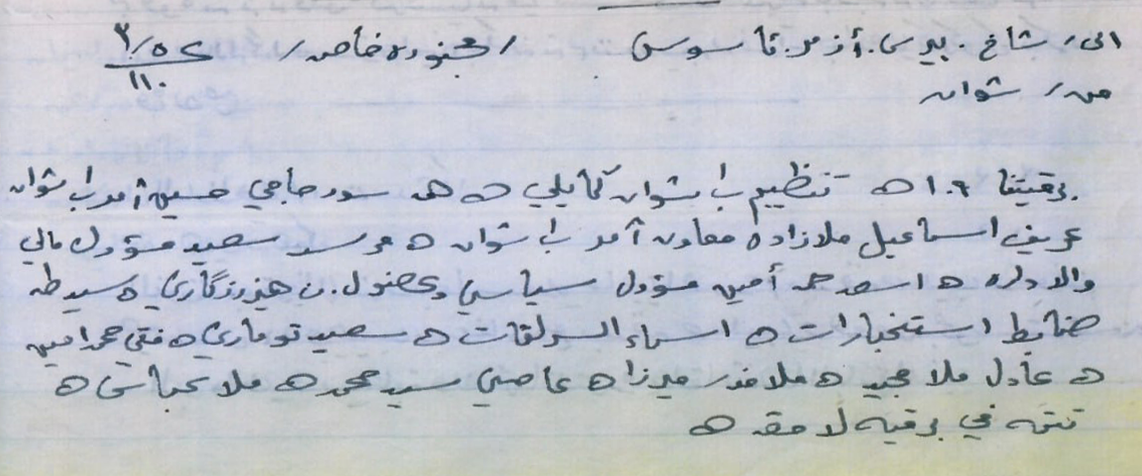 الى/ شاخ. بيرس. أزمر تا سوس / جنوده خاص/ ٢/٥٢ ١١٠
من/ شوان
برقيتنا ١٠٩ ه تنظيم ب شوان كمايلي ه هـ سور حاجي حسين آمر ب شوان
عريف اسماعيل ملازاده معاون آمر ب شوان ه سعيد مسؤول مالي
والادارة ه اسعد حمه أمين مسؤول سياسي وعضو ل. ن هيز رزگاري ه سيد طه
ضابط استخبارات ه اسماء السرلقات ه سعيد توماري ه فقي حمه امين
ه عادل ملا مجيد ه ملا خدر ميرزا ه عاصي سيد محمد ه ملا عباس ه
تتمه في برقيه لاحقه ه